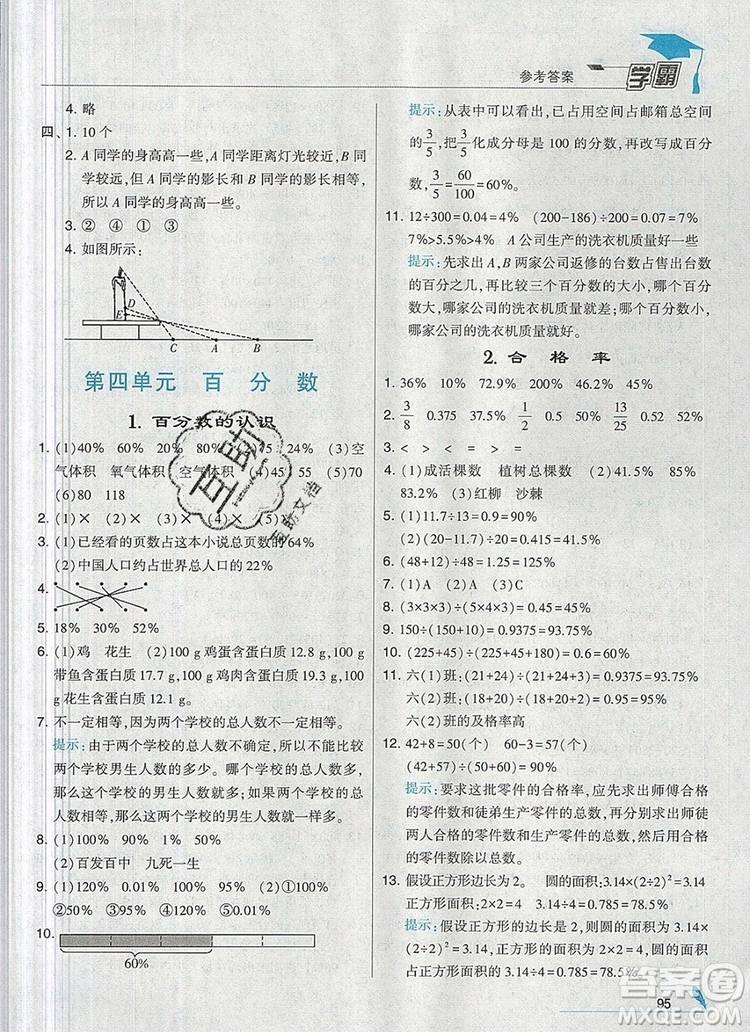 参考答案
学霸
4. 略
四、1. 10个
2. A同学的身高高一些,A同学距离灯光较近,B同
学较远,但A同学的影长和B同学的影长相等,
所以A同学的身高高一些。
3. ② ④ ① ③
4. 如图所示:
D
E
C A B
第四单元 百分数
1. 百分数的认识
1. (1)40% 60% 20% 80%
75% 24% (3)空
气体积 氧气体积 空气体积 (4)45 55 (5)70
(6)80 118
2. (1)× (2)× (3)× (4)× (5)
3. (1)已经看的页数占这本小说总页数的64%
(2)中国人口约占世界总人口的22%
4.
5. 18% 30% 52%
6. (1)鸡 花生 (2)100 g鸡蛋含蛋白质12.8 g,100 g
带鱼含蛋白质17.7 g,100 g鸡肉含蛋白质19.3 g,100
g花生含蛋白质12.1 g。
7. 不一定相等,因为两个学校的总人数不一定相等。
提示:由于两个学校的总人数不确定,所以不能比较
两个学校男生人数的多少。哪个学校的总人数多,
哪个学校的男生人数就多;如果两个学校的总人数
一样多,那么两个学校的男生人数就一样多。
8. (1)100% 90% 1% 50%
(2)百发百中 九死一生
9. (1)120% 0.01% 100% (2)①100%
②50% ③95% ④120% ⑤0.01%
10.
60%
提示:从表中可以看出,已占用空间占邮箱总空间
的3/5,把3/5化成分母是100的分数,再改写成百分
数,3/5=60/100=60%。
11. 12÷300=0.04=4% (200-186)÷200=0.07=7%
7%>5.5%>4% A公司生产的洗衣机质量好一些
提示:先求出A,B两家公司返修的台数占售出台数
的百分之几,再比较三个百分数的大小,哪家公司百
分数大,哪家公司的洗衣机质量就差;哪家公司百分数小,
哪家公司的洗衣机质量就好。
2. 合格率
1. 36% 10% 72.9% 200% 46.2% 45%
2. 3/8 0.375 37.5% 1/2 0.5 50% 13/25 0.52 52%
3. < > < = > =
4. (1)成活棵数 植树总棵数 (2)80% 85%
83.2% (3)红柳 沙棘
5. (1)11.7÷13=0.9=90%
(2)(20-11.7)÷20=0.415=41.5%
6. (48+12)÷48=1.25=125%
7. (1)A (2)A (3)C
8. (3×3×3)÷(5×4×3)=0.45=45%
9. 150÷(150+10)=0.9375=93.75%
10. (225+45)÷(225+45+180)=0.6=60%
11. 六(1)班:(21+24)÷(21+24+3)=0.9375=93.75%
六(2)班:(18+20)÷(18+20+2)=0.95=95%
六(2)班的及格率高
12. 42+8=50(个) 60-3=57(个)
(42+57)÷(50+60)=0.9=90%
提示:要求这批零件的合格率,应先求出师傅合格
的零件数和徒弟生产零件的总数,也就是求出师徒
两人合格的零件数和生产零件的总数,然后用合格
的零件数除以总数。
13. 假设正方形边长为2。 圆的面积:3.14×(2÷2)²=3.14
正方形面积:2×2=4 3.14÷4=0.785=78.5%
提示:假设正方形的边长是2,则圆的面积是3.14×
(2÷2)²=3.14,正方形的面积为2×2=4,圆的面积
占正方形面积的3.14÷4=0.785=78.5%。
95
互助
互助文档
答案圈
MXQE.COM